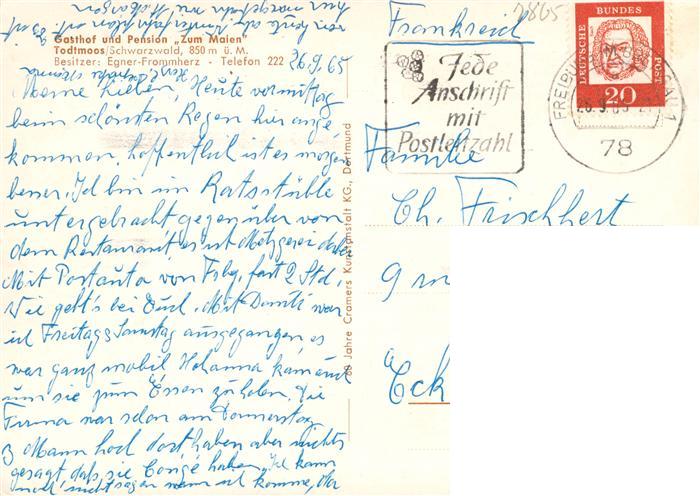 Gasthof und Pension „Zum Maien"
Todtmoos/Schwarzwald, 850 m ü. M.
Besitzer: Egner-Frommherz - Telefon 222
26.9.65
Meine Lieben, Heute vormittag
beim schönsten Regen hier ange
kommen, hoffentlich ist es morgen
besser. Ich bin im Ratsstüble
untergebracht gegenüber von
dem Restaurant es ist Metzgerei dabei
Mit Postauto von Fbg, fast 2 Std.
Wie geht's bei Euch. Mit war
ich Freitag Samstag ausgegangen es
war ganz mobil Johanna kam auch
um sie zum Essen zu holen. Die
Firma war schon am Donnerstag
3 Mann hoch dort haben aber nichts
gesagt daß sie Congé haben. Ich kann
noch nicht sagen wann ich komme,
60 Jahre Cramers Kunstanstalt KG., Dortmund
Frankreich
2865
Jede
Anschrift
mit
Postleitzahl
DEUTSCHE BUNDES POST
20
78
Familie
Ch. Frischhert
Eck